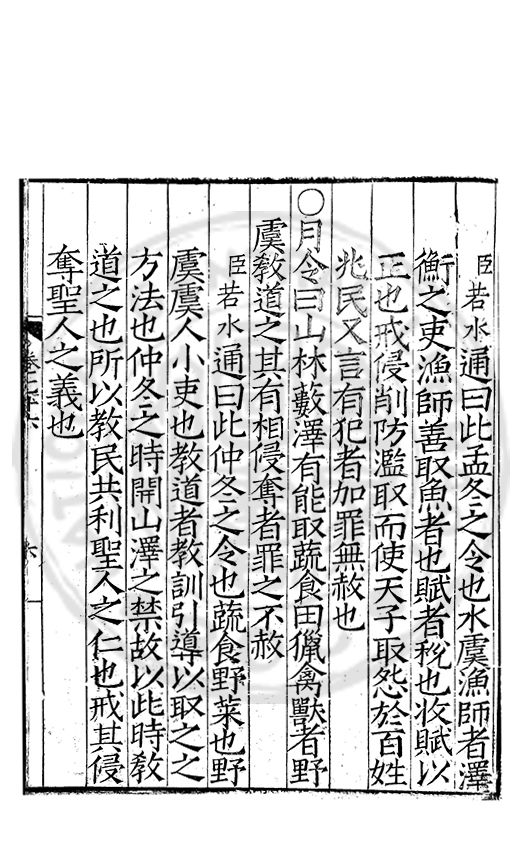 臣若水通曰此孟冬之令也水虞漁師者澤
衡之吏漁師善取魚者也賦者稅也收賦以
正也戒侵削防濫取而使天子取怨於百姓
兆民又言有犯者加罪無赦也
○月令曰山林藪澤有能取蔬食田獵禽獸者野
虞教道之其有相侵奪者罪之不赦
臣若水通曰此仲冬之令也蔬食野菜也野
虞虞人小吏也教道者教訓引導以取之之
方法也仲冬之時開山澤之禁故以此時教
道之也所以教民共利聖人之仁也戒其侵
奪聖人之義也
卷七十六
六